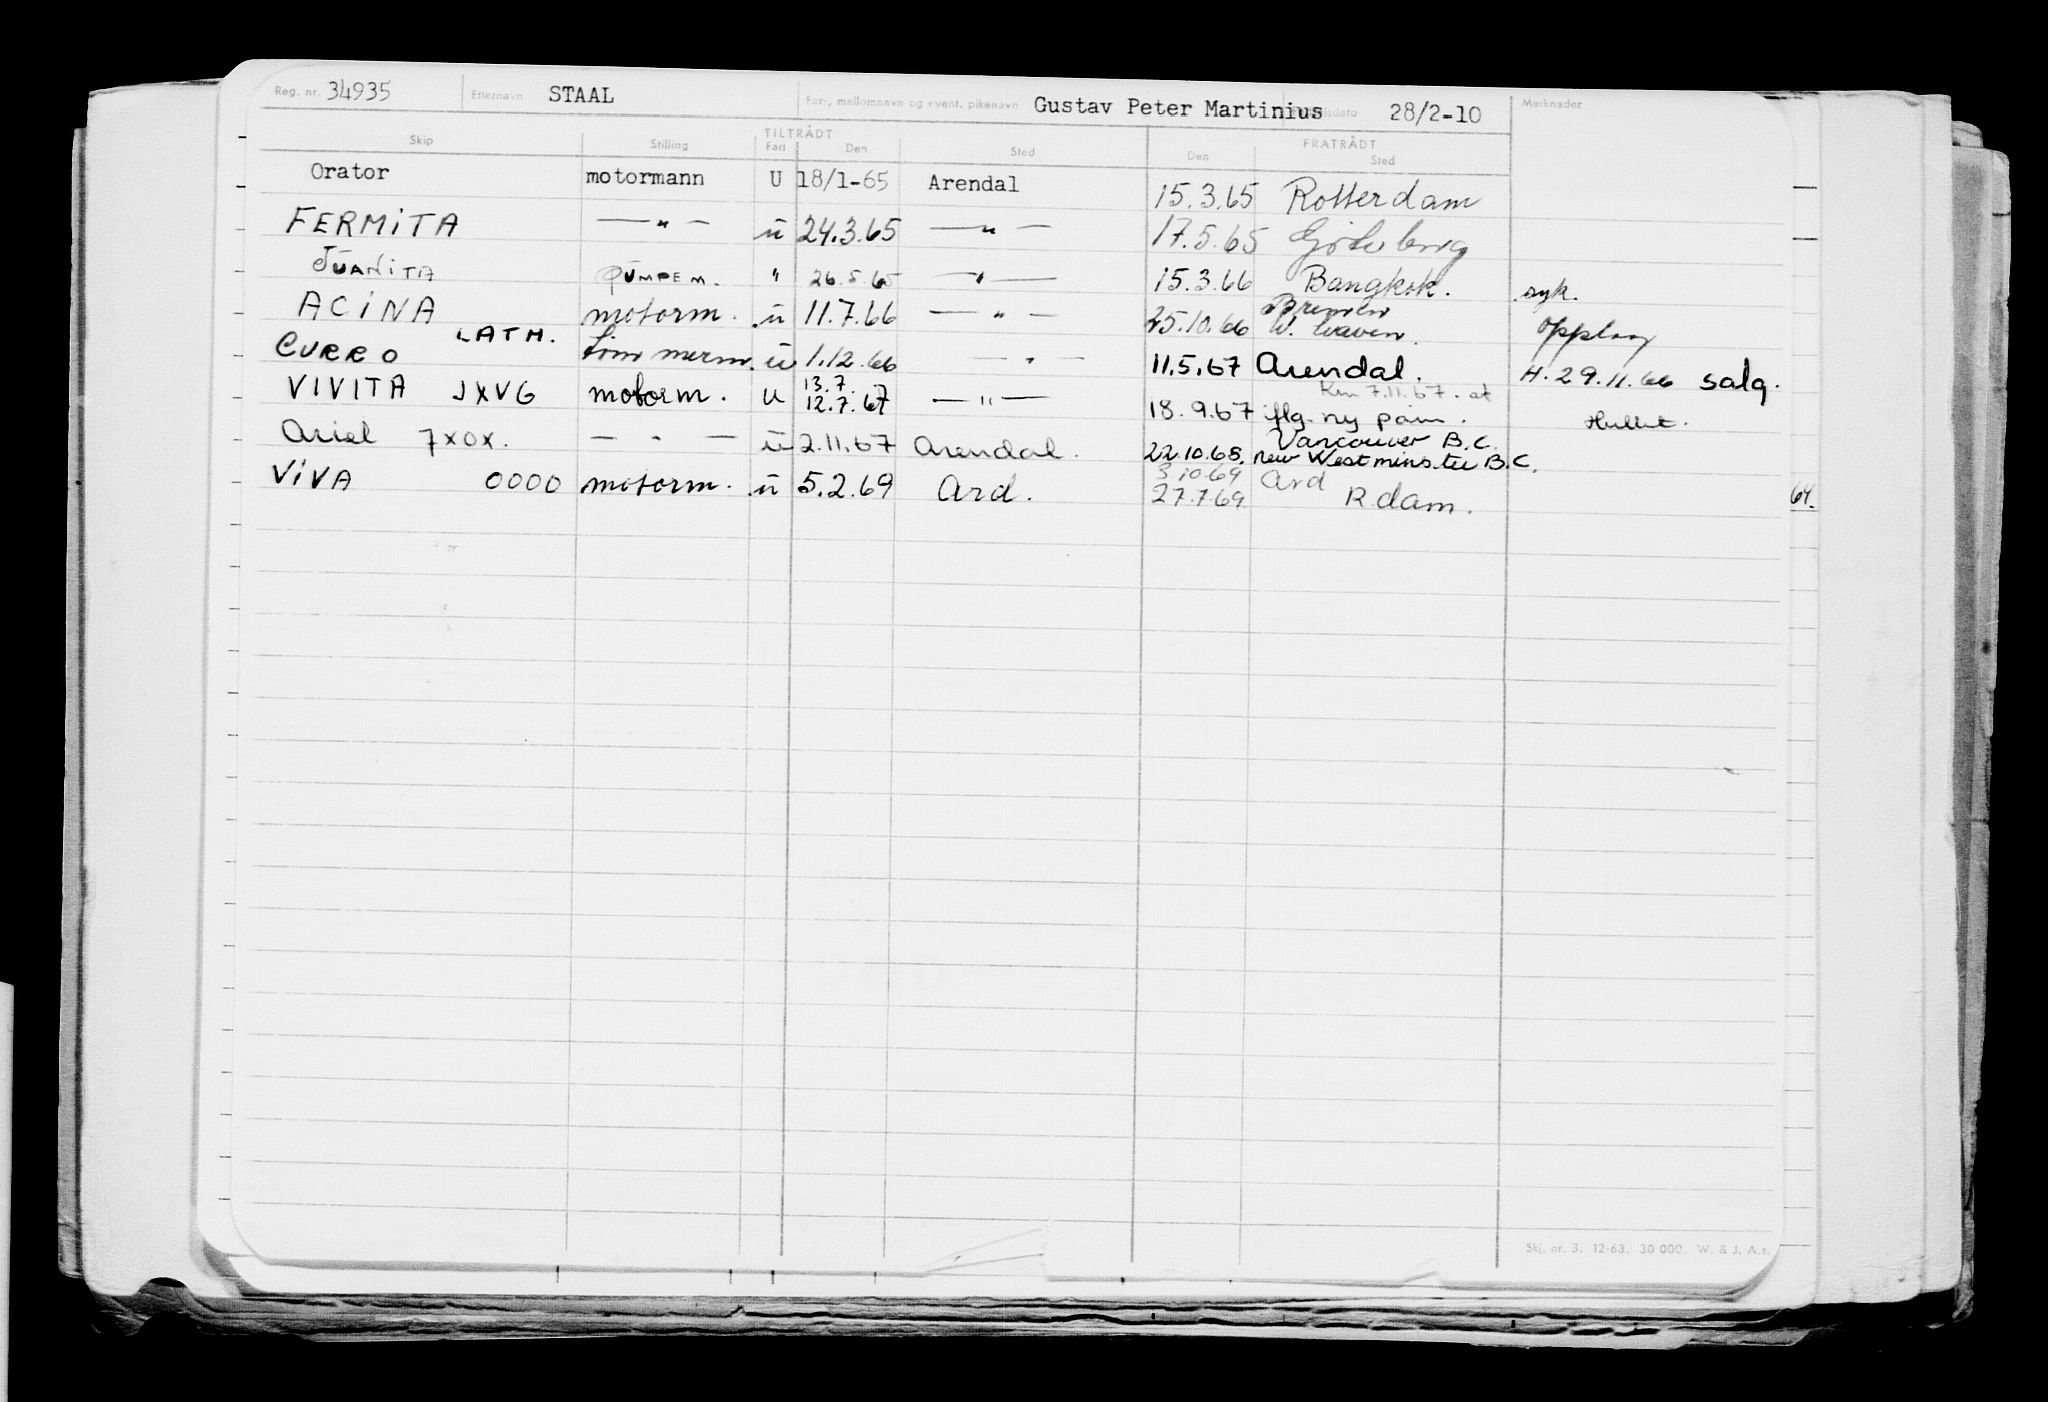 Reg. nr. 34935 Etternavn STAAL For-, mellomnavn og event. pikenavn Gustav Peter Martinius 28/2-10 Merknader
TILTRÅDT FRATRÅDT
Skip Stilling Fart Den Sted Den Sted
Orator motormann U 18/1-65 Arendal 15.3.65 Rotterdam
FERMITA — " — u 24.3.65 — " — 17.5.65 Göteborg
JUANITA PUMPEM. " 26.5.65 — " — 15.3.66 Bangkok. syk.
ACINA motorm. u 11.7.66 — " — 25.10.66 Bremerhaven. Opplag
CURRO LATH. u 1.12.66 — " — 11.5.67 Arendal. H. 29.11.66 salg.
VIVITA JXVG motorm. u 13.7. 12.7.67 — " — 18.9.67 iflg. ny påm. 7.11.67. at
Ariel 7XOX. — " — u 2.11.67 Arendal. 22.10.68. Vancouver B.C. New Westminster B.C.
VIVA 0000 motorm. u 5.2.69 Ard. 3.10.69 Ard
27.7.69 R.dam. 64.
Skj. nr. 3. 12-63. 30 000. W. & J. A.s.